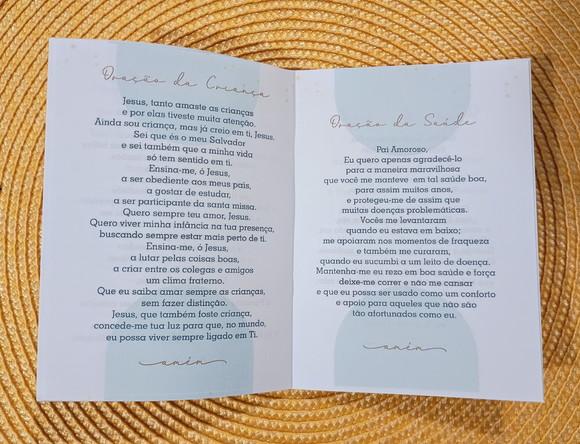 Oração da Criança
Jesus, tanto amaste as crianças
e por elas tiveste muita atenção.
Ainda sou criança, mas já creio em ti, Jesus.
Sei que és o meu Salvador
e sei também que a minha vida
só tem sentido em ti.
Ensina-me, ó Jesus,
a ser obediente aos meus pais,
a gostar de estudar,
a ser participante da santa missa.
Quero sempre teu amor, Jesus.
Quero viver minha infância na tua presença,
buscando sempre estar mais perto de ti.
Ensina-me, ó Jesus,
a lutar pelas coisas boas,
a criar entre os colegas e amigos
um clima fraterno.
Que eu saiba amar sempre as crianças,
sem fazer distinção.
Jesus, que também foste criança,
concede-me tua luz para que, no mundo,
eu possa viver sempre ligado em Ti.
amén
Oração da Saúde
Pai Amoroso,
Eu quero apenas agradecê-lo
para a maneira maravilhosa
que você me manteve em tal saúde boa,
para assim muitos anos,
e protegeu-me de assim que
muitas doenças problemáticas.
Vocês me levantaram
quando eu estava em baixo;
me apoiaram nos momentos de fraqueza
e também me curaram,
quando eu sucumbi a um leito de doença.
Mantenha-me eu rezo em boa saúde e força
deixe-me correr e não me cansar
e que eu possa ser usado como um conforto
e apoio para aqueles que não são
tão afortunados como eu.
amén